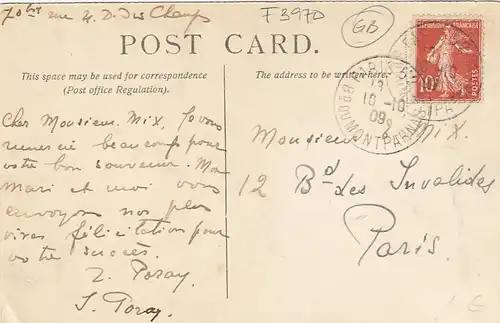 70 bis rue N. D. des Champs
F3970
GB
POST CARD.
This space may be used for correspondence
(Post office Regulation).
The address to be written here.
Cher Monsieur Mix, Je vous
remercie beaucoup pour
votre bon souvenir. Mon
Mari et moi vous
envoyons nos plus
vives félicitations pour
votre succès.
Z. Poray.
S. Poray.
Monsieur Mix.
12 Bd des Invalides
Paris.
PARIS
10-10
09
BOUL MONTPARNASSE
10c
POSTES